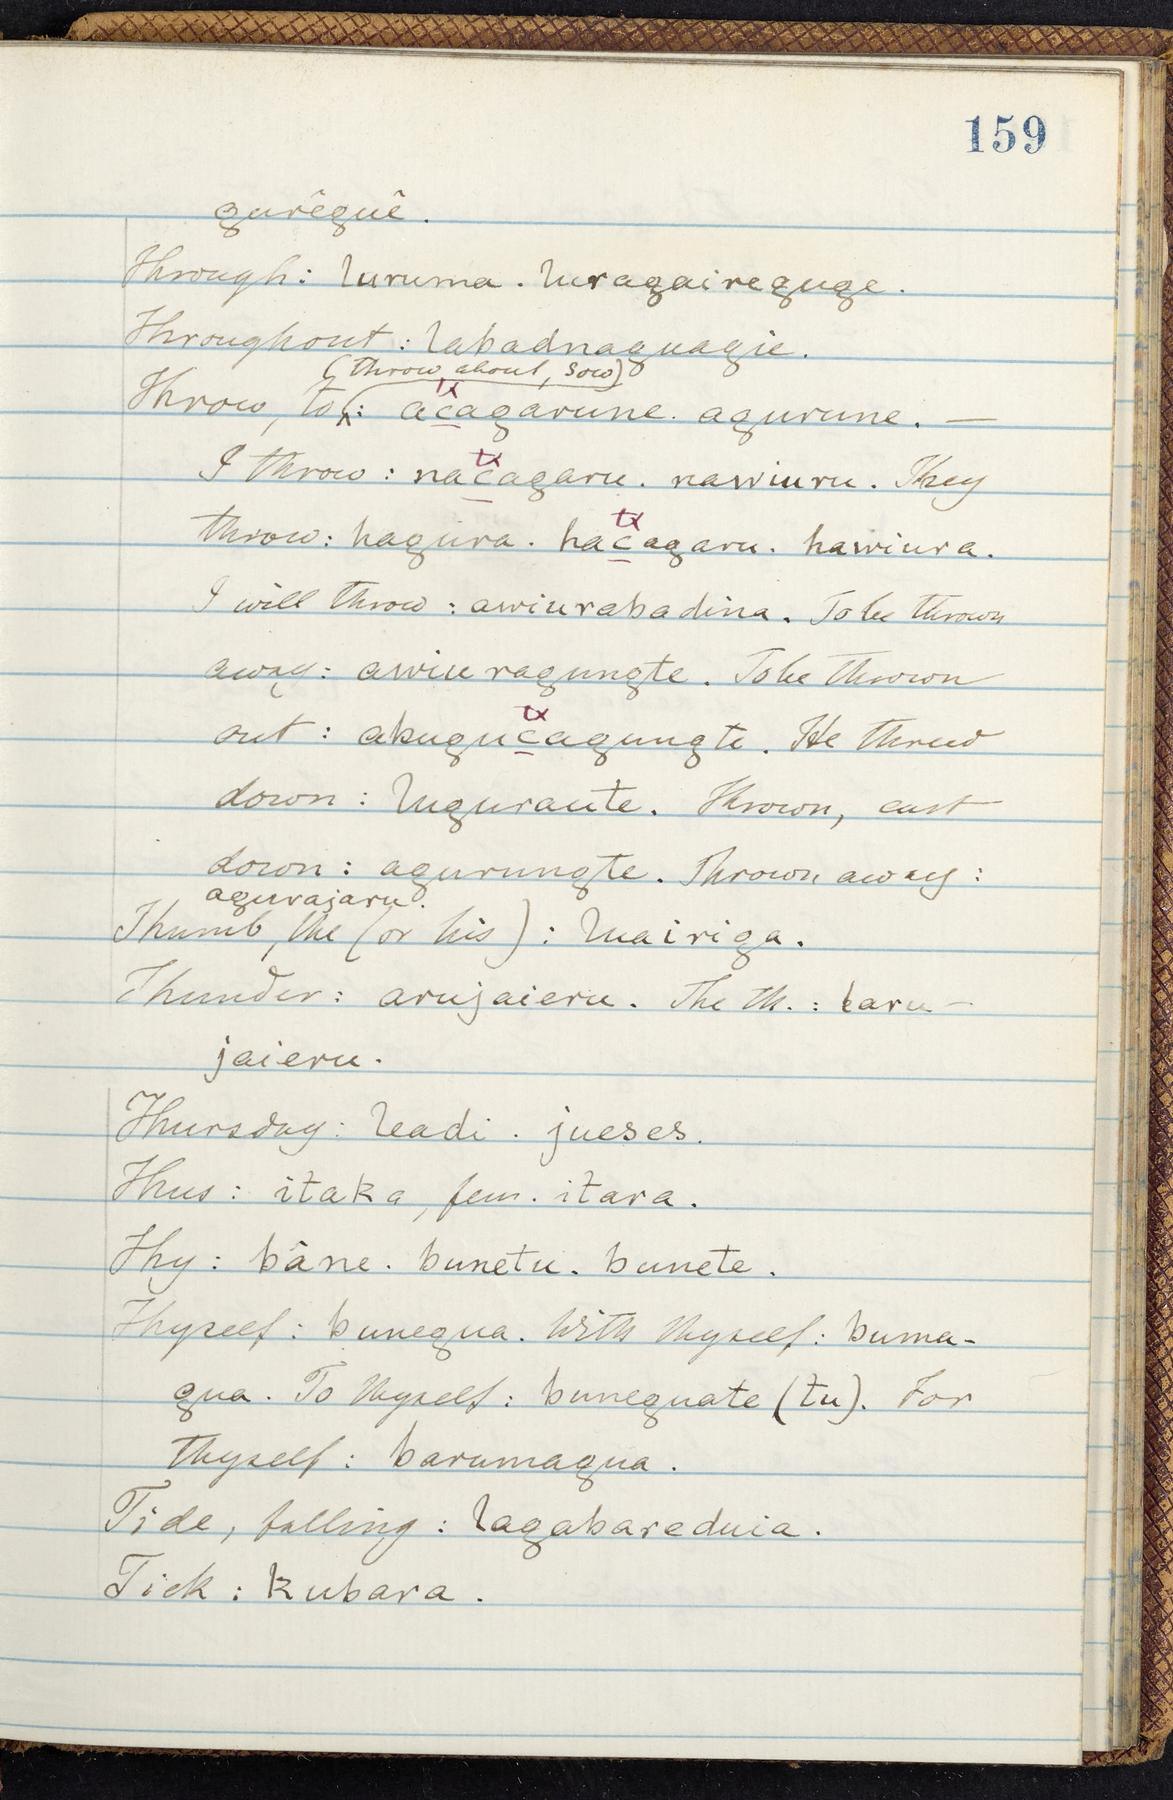 159
gurêguê.
Through: luruma. luragaireguge.
Throughout: labadnaguagie.
(throw about, sow)
Throw, to: acagarune. agurune. —
tx
I throw: nacagaru. nawiuru. They
tx
throw: hagura. hacagaru. hawiura.
tx
I will throw: awiurabadina. To be thrown
away: awiuragungte. To be thrown
out: akugucagungte. He threw
tx
down: luguraute. Thrown, cast
down: agurungte. Thrown away:
agurajaru.
Thumb, the (or his): luairiga.
Thunder: arujaieru. The th.: laru-
jaieru.
Thursday: leadi. jueses.
Thus: itaka, fem. itara.
Thy: bâne. bunetu. bunete.
Thyself: bunegua. With thyself: buma-
gua. To thyself: buneguate (tu). For
thyself: barumagua.
Tide, falling: lagabareduia.
Tick: kubara.